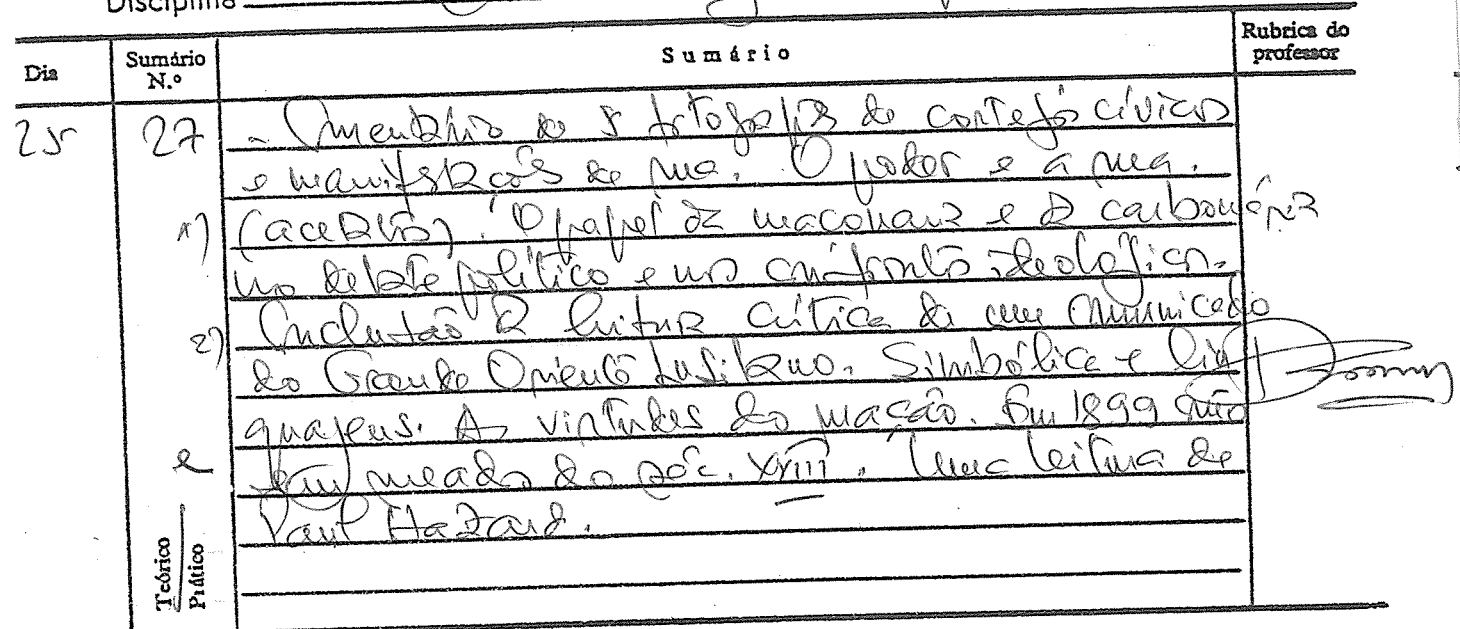 Disciplina
Dia
Sumário N.º
Sumário
Rubrica do professor
25
27
- Comentário de 5 fotografias de cortejos cívicos
e manifestações de rua. O poder e a rua.
1) (acetatos). O papel da maçonaria e da carbonária
no debate político e no confronto ideológico.
2) Conclusão da leitura crítica de um comunicado
do Grande Oriente Lusitano. Simbólica e lin
guagens. As virtudes do mação. Em 1899
em meados do séc. XVIII. Uma leitura de
Paul Hazard.
e
Teórico
Prático